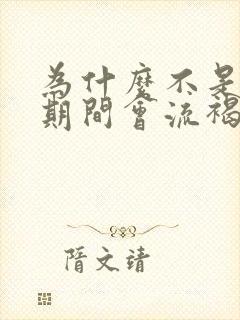 為什麼不是
期間會流褐
隋文靖